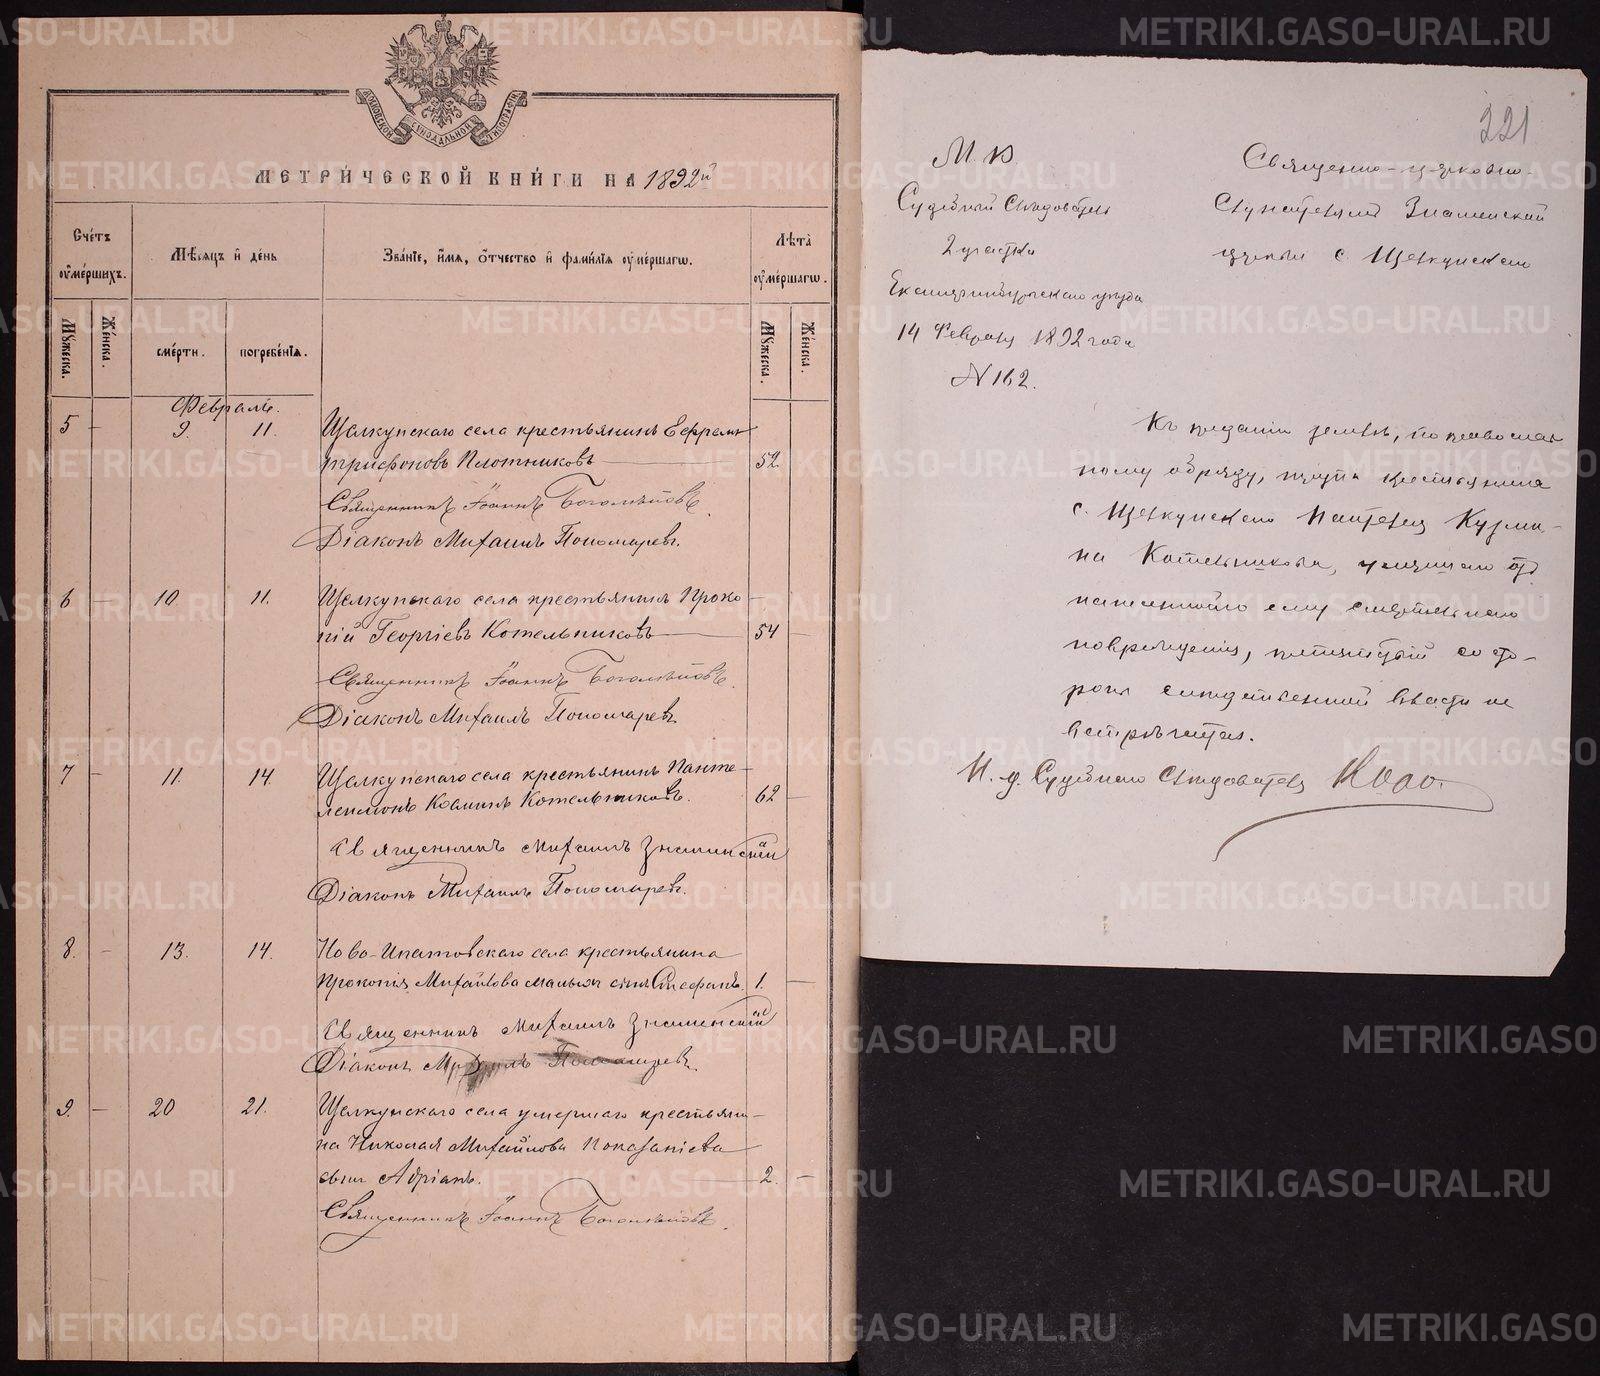 МОСКОВСКОЙ СѴНОДАЛЬНОЙ ТИПОГРАФІИ
МЕТРИ́ЧЕСКОЙ КНИ́ГИ НА 1892й
Сче́тъ ѹ҆ме́ршихъ.
Мѣ́сѧцъ и҆ де́нь
Зва́нїе, и҆́мѧ, ѻ҆́тчество и҆ фами́лїѧ ѹ҆ме́ршагѡ.
Лѣ́та ѹ҆ме́ршагѡ.
Мꙋ́жеска.
Же́нска.
сме́рти.
погребе́нїѧ.
Мꙋ́жеска.
Же́нска.
Февраль.
5 - 9. 11. Щелкунскаго села крестьянинъ Ефремъ
Трифоновъ Плотниковъ 52
Священникъ Іоаннъ Боголѣповъ.
Діаконъ Михаилъ Пономаревъ.
6 - 10 11. Щелкунскаго села крестьянинъ Проко
пій Георгіевъ Котельниковъ 54 -
Священникъ Іоаннъ Боголѣповъ.
Діаконъ Михаилъ Пономаревъ
7 - 11. 14. Щелкунскаго села крестьянинъ Панте-
леимонъ Косминъ Котельниковъ. 62 -
Священникъ Михаилъ Знаменскій
Діаконъ Михаилъ Пономаревъ.
8. - 13. 14. Ново-Ипатовскаго села крестьянина
Прокопія Михайлова сынъ Стефанъ. 1. -
Священникъ Михаилъ Знаменскій
Діаконъ Михаилъ Пономаревъ.
9. - 20 21. Щелкунскаго села умершаго крестьяни-
на Николая Михайлова
сынъ Адріанъ. 2. -
Священникъ Іоаннъ Боголѣповъ.
221
М. Ю.
Судебный Слѣдователь
2 участка
Екатеринбургскаго уѣзда
14 Февраля 1892 года
N 162.
Священно-церковно-
служителямъ Знаменской
церкви с. Щелкунскаго
Къ преданію землѣ, по православ
ному обряду, трупа крестьянина
с. Щелкунскаго Пантелея Кузми-
на Котельникова, умершаго отъ
нанесеннаго ему смертельнаго
поврежденія, препятствій со сто-
роны слѣдственной власти не
встрѣчается.
И. д. Судебнаго Слѣдователя
METRIKI.GASO-URAL.RU